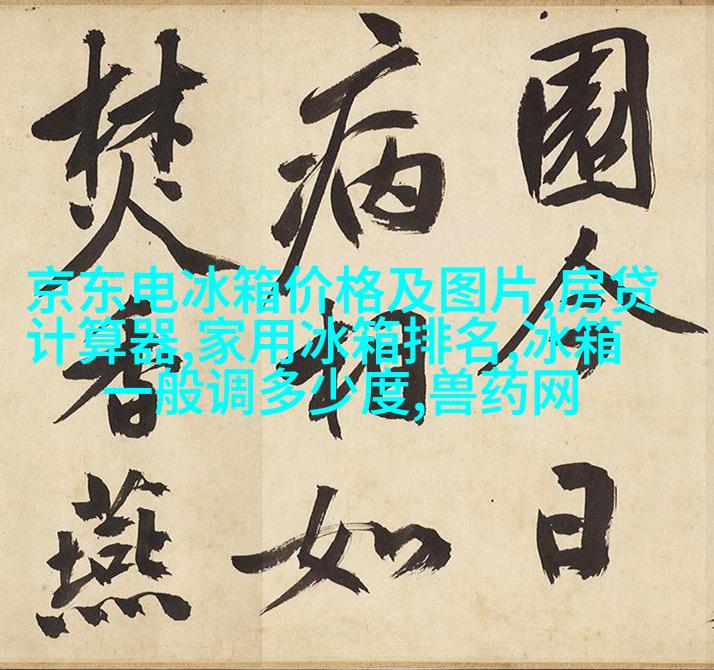 園今日
病相如
焚香燕
京东电冰箱价格及图片,房贷
计算器,家用冰箱排名,冰箱
一般调多少度,兽药网